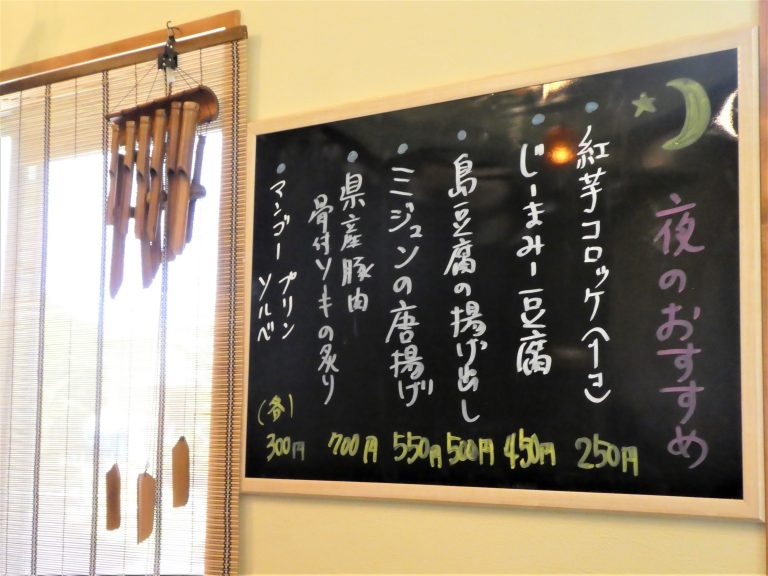 夜のおすすめ
紅芋コロッケ(1コ)
250円
じーまみー豆腐
450円
島豆腐の揚げ出し
500円
ミジュンの唐揚げ
550円
県産豚肉
骨付ソーキの炙り
700円
マンゴー プリン
ソルベ
(各)
300円